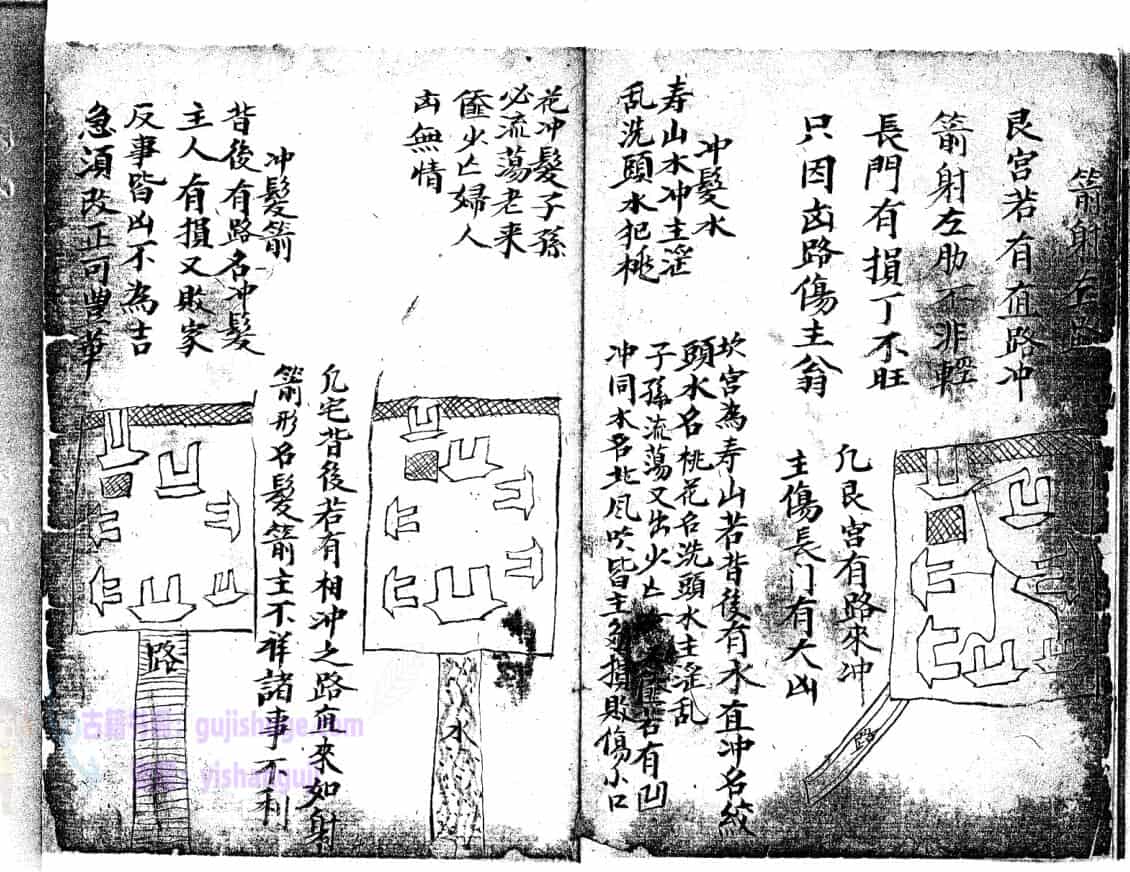 箭射左
艮宮若有直路冲
箭射左肋不非輕
長門有損丁不旺
只因凶路傷主翁
凡艮宮有路來冲
主傷長门有大凶
路
冲髮水
寿山水冲主淫
乱洗頭水犯桃
花冲髮子孫
必流蕩老来
少亡婦人
无情
坎宮為寿山若背後有水直冲名紋
頭水名桃花名洗頭水主淫乱
子孫流蕩又出少亡
若有凹
冲同水名北风吹皆主
損敗傷小口
水
冲髮箭
背後有路名冲髮
主人有損又敗家
反事皆凶不為吉
急須改正可豊華
凡宅背後若有相冲之路直來如射
箭形名髮箭主不祥諸事不利
路
古籍
gujishuge.com
yishanguji